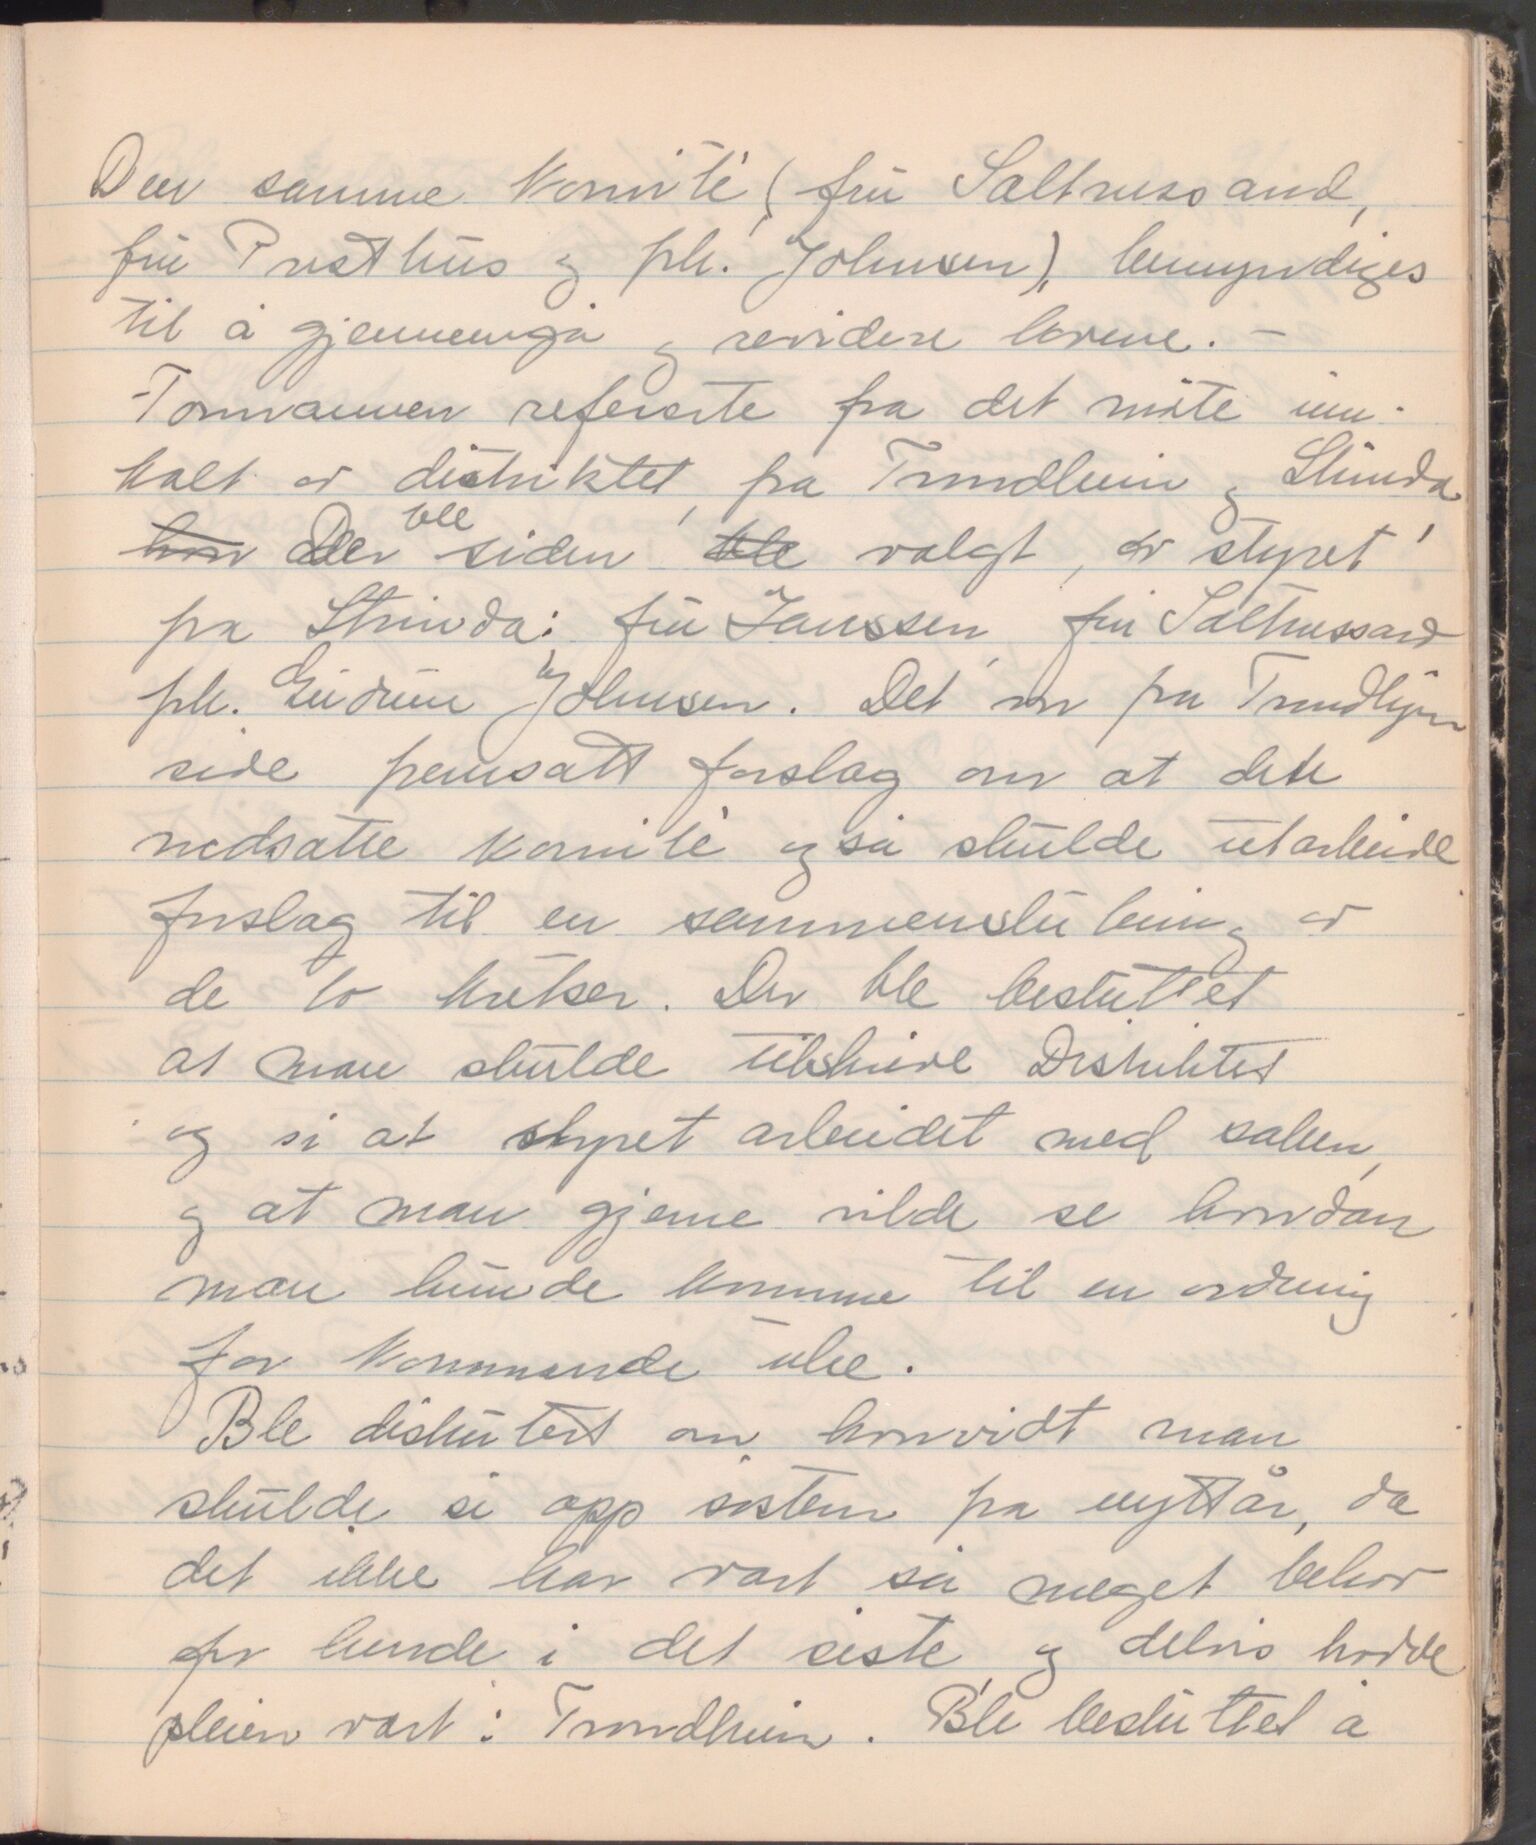 Den samme komité (fru Saltnessand,
fru Presthus og frk. Johnsen), bemyndiges
til å gjennemgå og revidere lovene. -
Formannen refererte fra det møte inn-
kalt av distriktet, fra Trondheim og Strinda
hvor Der ble siden ble valgt, av styret
fra Strinda: fru Janssen, fru Saltnessand
og frk. Gudrun Johnsen. Det var fra Trondhjem
side fremsatt forslag om at dette
nedsatte komité også skulde utarbeide
forslag til en sammenslutning av
de to kretser. Der ble besluttet
at man skulde tilskrive Distriktet
og si at styret arbeidet med saken,
og at man gjerne vilde se hvordan
man kunde komme til en ordning
for kommande uke.
Ble diskutert om hvorvidt man
skulde si opp søstern fra nyttår, da
det ikke har vært så meget behov
for hende i det siste og delvis hadde
pleien vært i Trondheim. Ble besluttet å